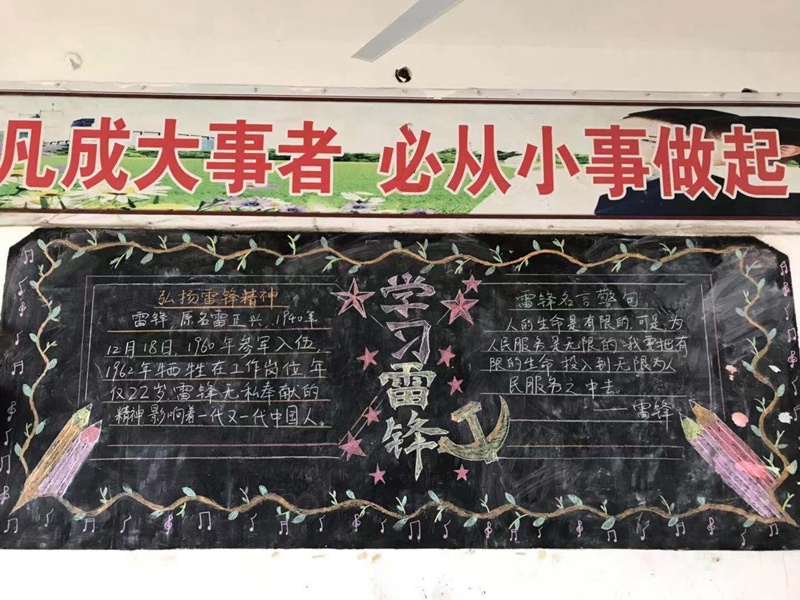 凡成大事者 必从小事做起
弘扬雷锋精神
雷锋,原名雷正兴,1940年
12月18日,1960年参军入伍
1962年牺牲在工作岗位,年
仅22岁,雷锋无私奉献的
精神影响着一代又一代中国人。
学习雷锋
雷锋名言警句
人的生命是有限的,可是为
人民服务是无限的,我要把有
限的生命,投入到无限为人
民服务之中去。
——雷锋